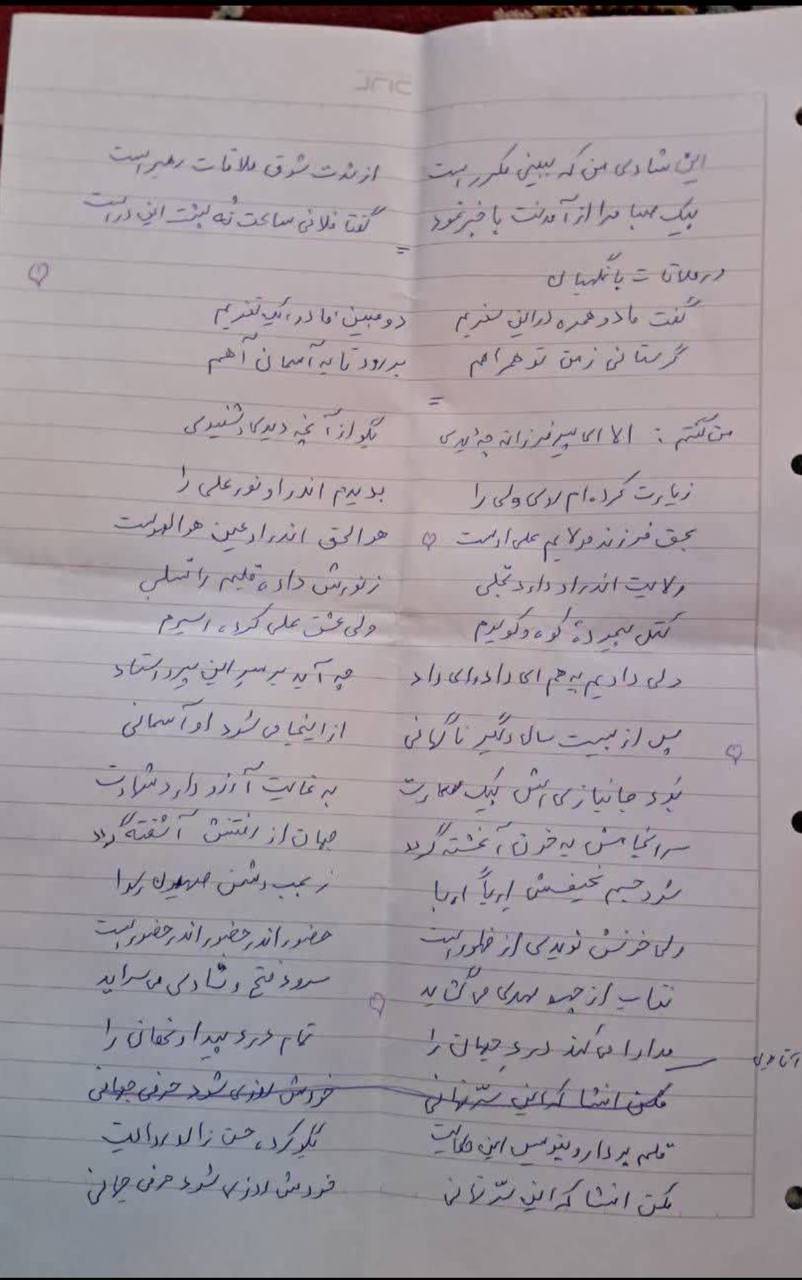 این شادی من که ببینی مکرر است از شدت شوق ملاقات رهبر است
پیک صبا مرا از آمدنت با خبر نمود گفتا فلانی ساعت نُه پشت این در است
=
در ملاقات با نگهبان
گفت ما دو همره در این سفریم دو مبین ما در، یک نفریم
گر ستانی ز من تو همراهم بر رود تا به آسمان آهم
=
من گفتم: الا ای پیر فرزانه چه دیدی بگو از آنچه دیدی و شنیدی
زیارت کرده‌ام روی ولی را بدیدم اندر او نور علی را
بحق فرزند مولایم علی اوست هو الحق اندر او عین هو الهوست
ولایت اندر او دارد تجلی ز نورش داده قلبم را تسلی
ولی عشق علی کرده اسیرم
ولی دادیم به هم ای داد ای داد چه آید بر سر این پیر استاد
پس از بیست سال دگیر ناگهانی از اینجا می شود او آسمانی
بُود جانبازی اش یک به غایت آرزو دارد شهادت
سرانجامش به خون آغشته گردد جهان از رفتنش آشفته گردد
شود جسم نحیفش اِرباً اِربا ز بمب دشمن صهیون رسوا
ولی خونش نویدی از ظهور است حضور اندر حضور اندر حضور است
نقاب از چهره مهدی می گشاید سرود فتح و شادی می سراید
مداوا می کند درد جهان را تمام درد پیدا و نهان را
مکن افشا که این سرّ نهانی خودش روزی شود حرفی جهانی
قلم بردار و بنویس این حکایت
مکن افشا که این سرّ نهانی خودش روزی شود حرفی جهانی